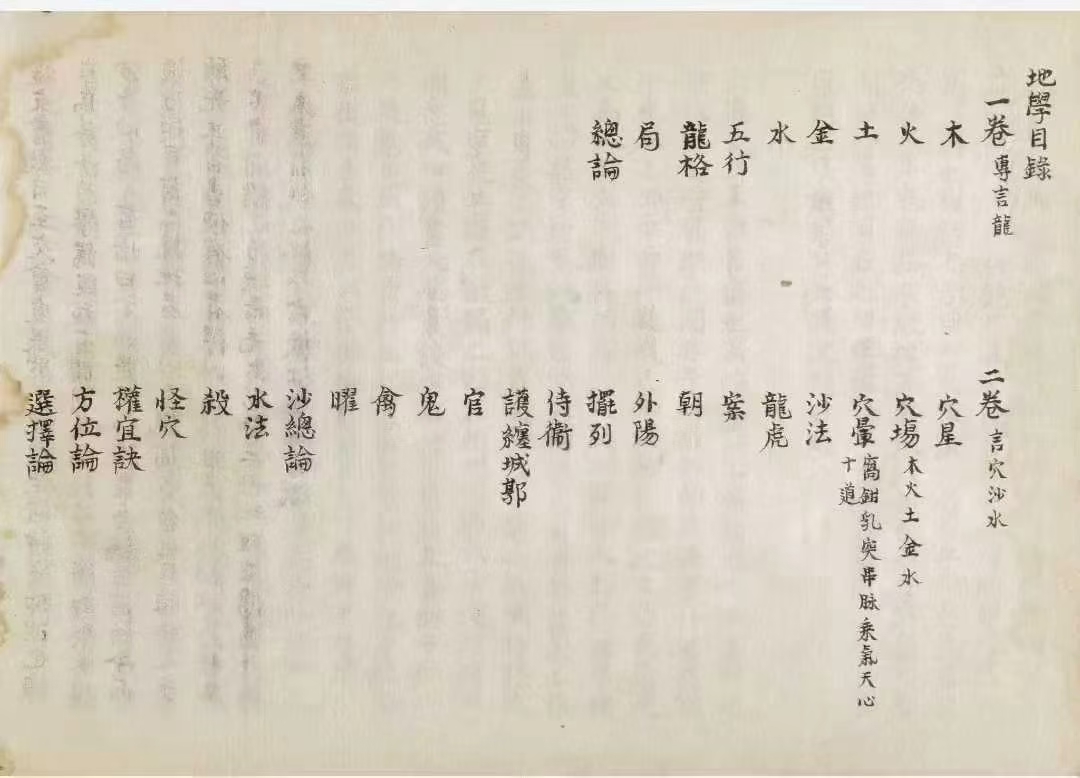 地學目錄
一卷 專言龍
木
火
土
金
水
五行
龍格
局
總論
二卷 言穴沙水
穴星
穴塲 木火土金水
穴暈 窩鉗乳突串脉乘氣天心十道
沙法
龍虎
案
朝
外陽
擺列
侍衞
護纏城郭
官
鬼
禽
曜
沙總論
水法
殺
怪穴
權宜訣
方位論
選擇論